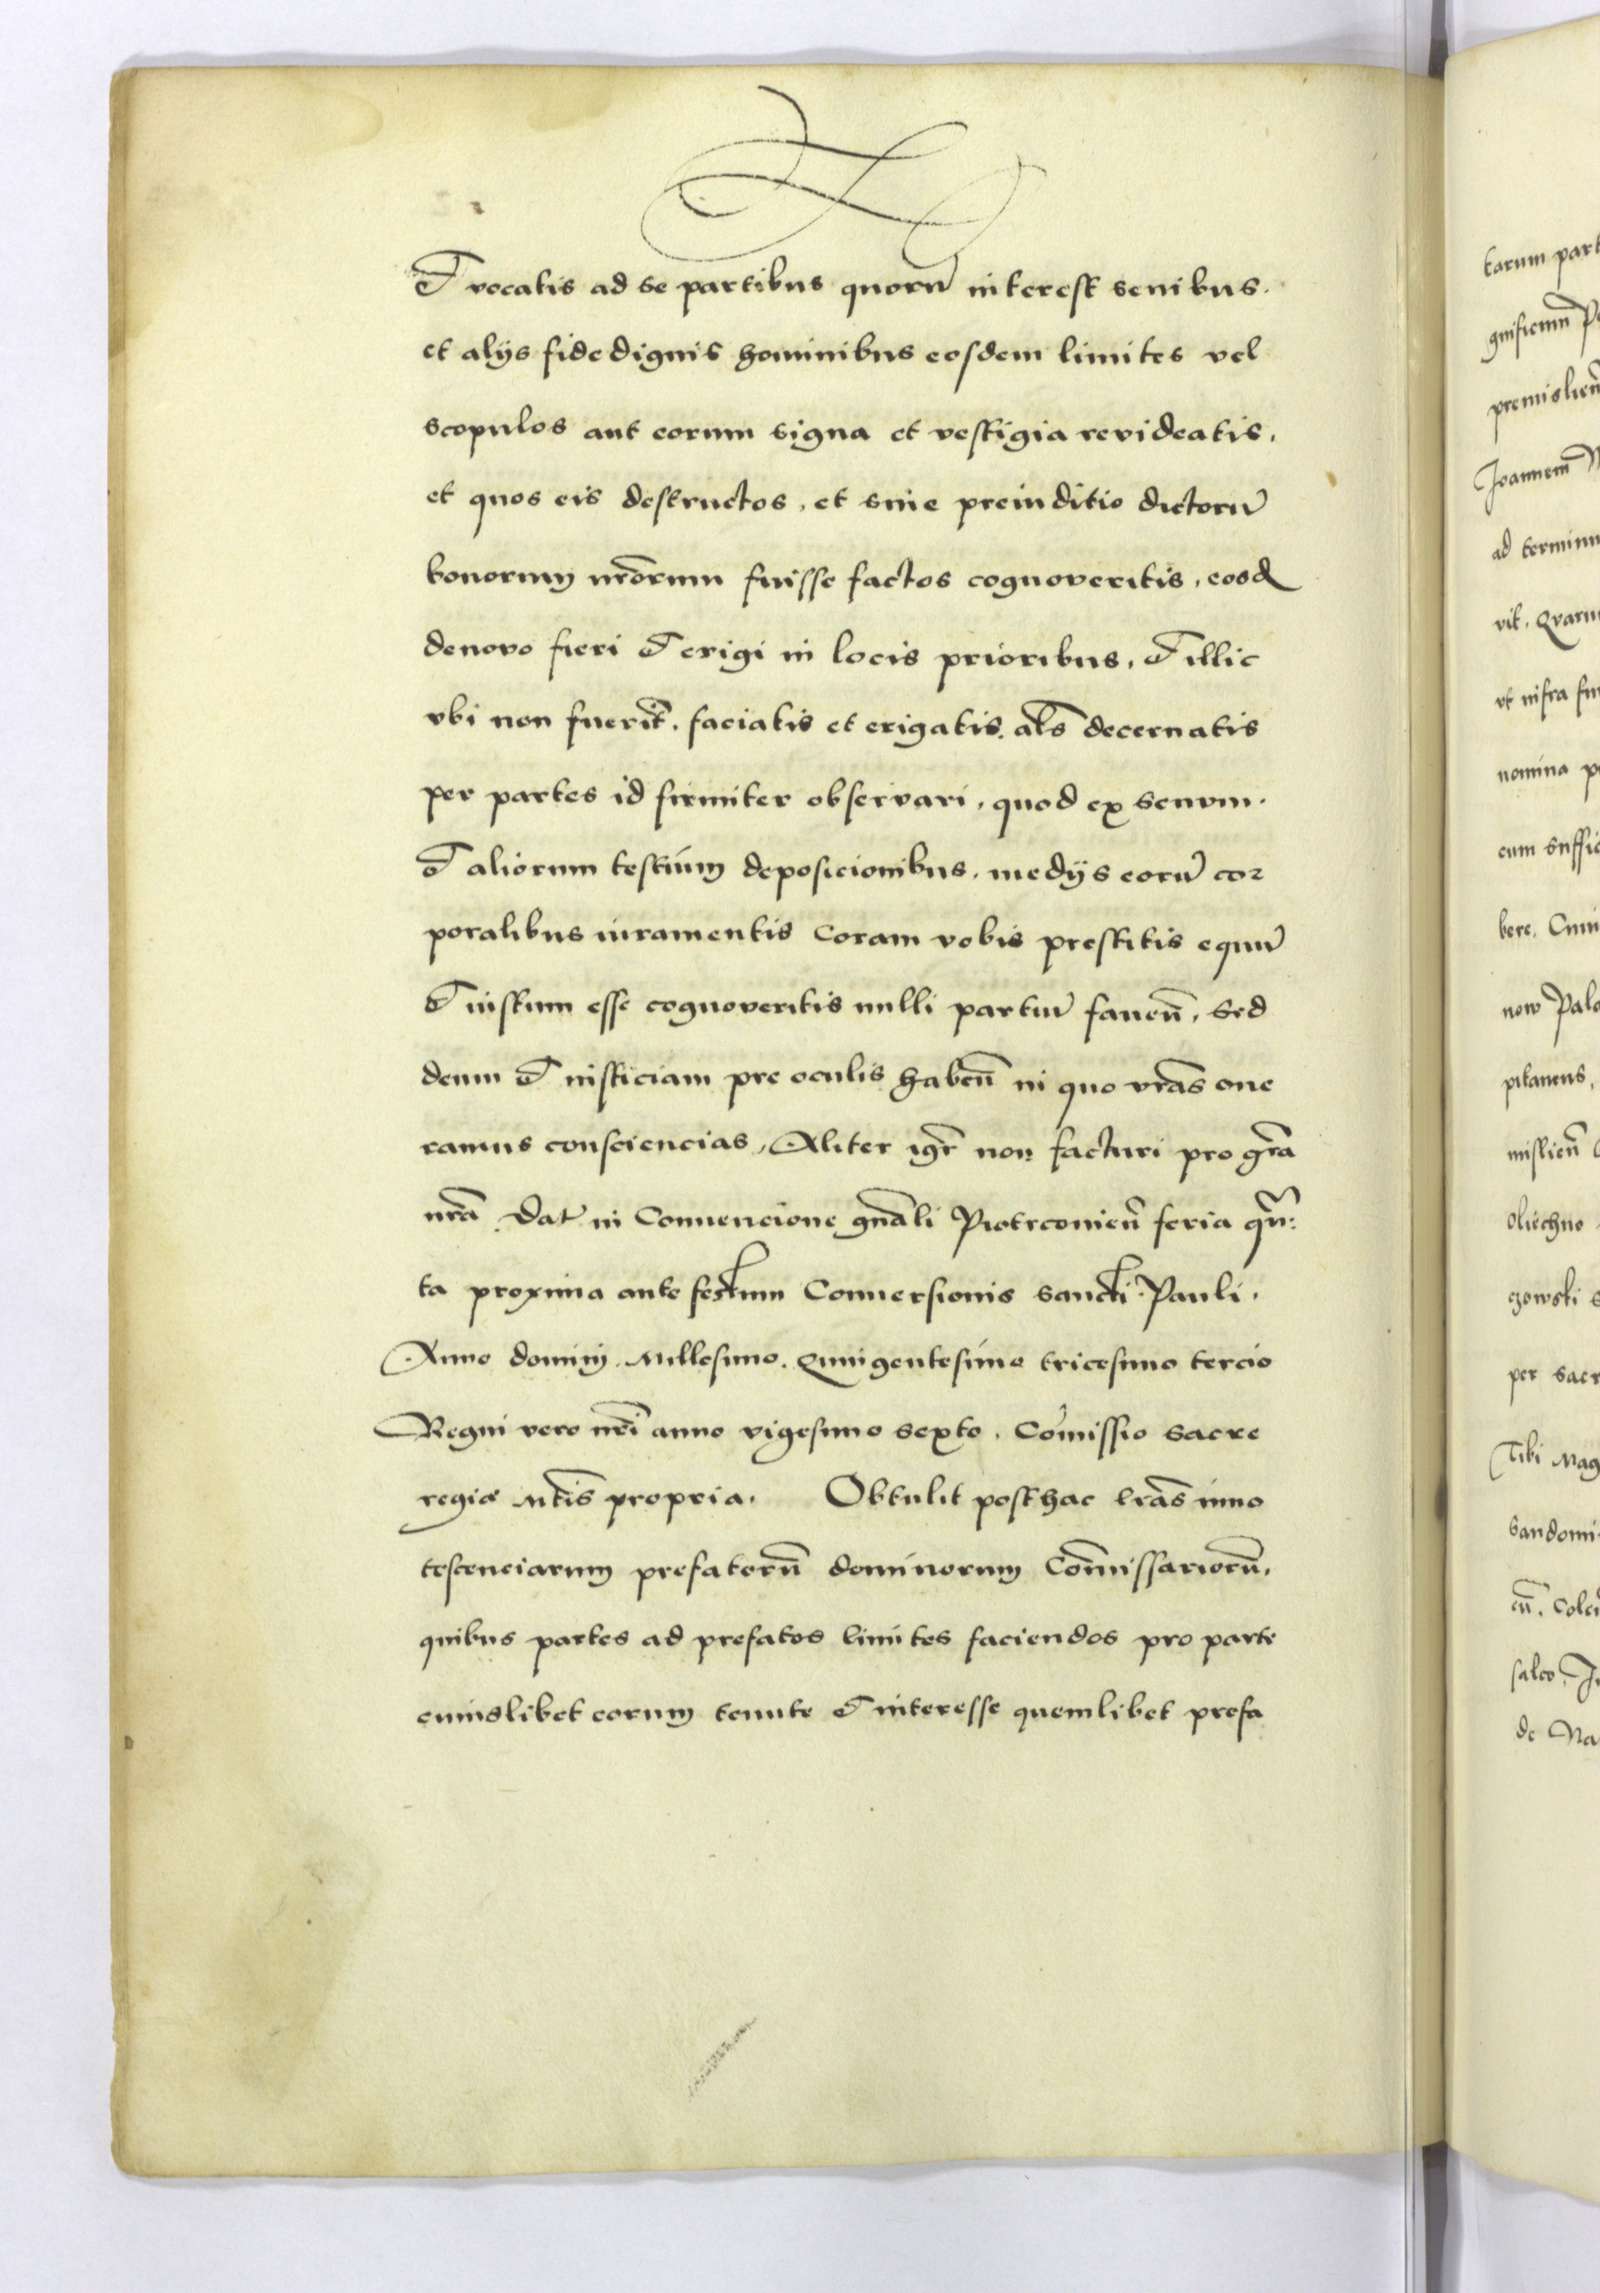 Et vocatis ad se partibus quorū interest senibus.
et alijs fidedignis hominibus eosdem limites vel
scopulos aut eorum signa et vestigia revideatis,
et quos eis destructos, et sine preiuditio dictorū
bonorum nrōrum fuisse factos cognoveritis, eosd
denovo fieri et erigi in locis prioribus, et illic
vbi non fuerīt. faciatis et erigatis. als̄ decernatis
per partes id firmiter observari, quod ex senum.
et aliorum testium deposicionibus, medijs eorū cor
poralibus iuramentis coram vobis prestitis equū
et iustum esse cognoveritis nulli partiū faueñ, Sed
deum et iusticiam pre oculis habeñ in quo vrās one
ramus consciencias, Aliter igr̄ non facturi pro grā
nrā. Dat in Conuencione gnāli Piotrconieñ feria qn̄:
ta proxima ante festum Conuersionis sancti Pauli.
Anno domini Millesimo. Quingentesimo tricesimo tercio
Regni vero nrī anno vigesimo sexto. Cōmissio sacre
regie Mtīs propria. Obtulit posthac lrās inno
tescenciarum prefatorū dominorum Cōmissariorū,
quibus partes ad prefatos limites faciendos pro parte
cuiuslibet eorum tenute et interesse quemlibet prefa
tarum part
gnificum
Joannem
ad terminu
vit. Qvaru
vt infra
nomina
cum suffic
bere. Cui
now Pal
pitaneus,
Oliechno
czowski
per sacr
Tibi Mag
Sandomi
salco,
de Na